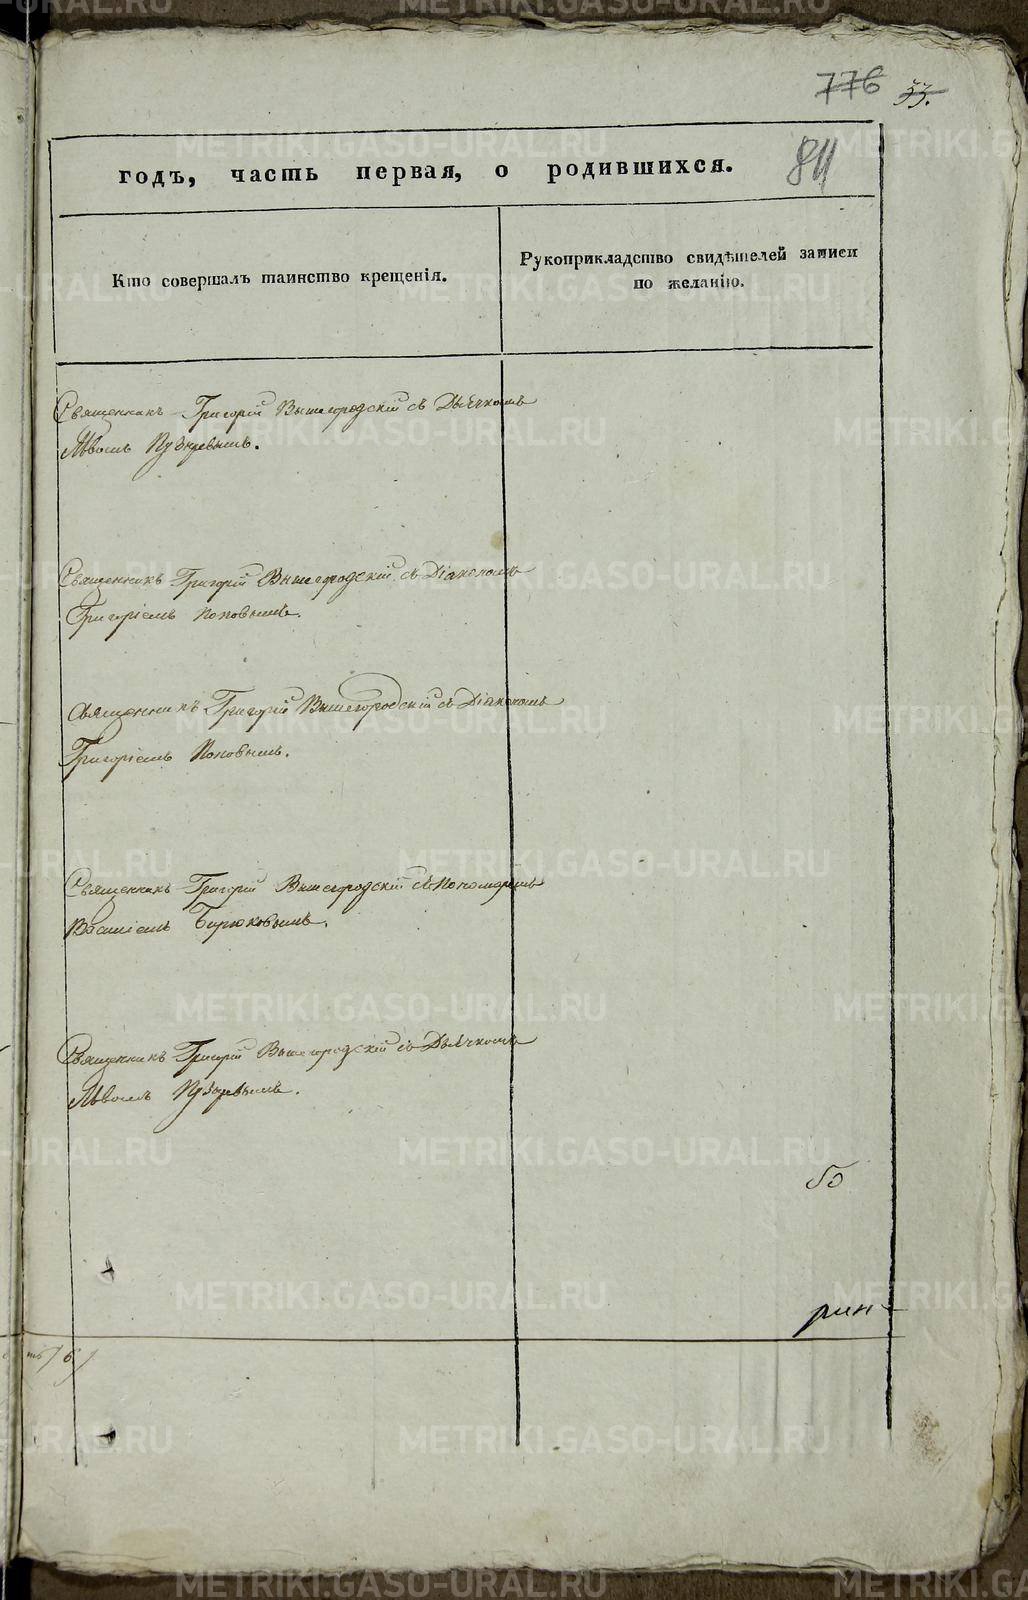 776 33.
811
годъ, часть первая, о родившихся.
Кто совершалъ таинство крещенія.
Рукоприкладство свидѣтелей записи
по желанію.
Священникъ Григорій Вышегородскій съ Дьячкомъ
Львомъ Пузыревымъ.
Священникъ Григорій Вышегородскій съ Діакономъ
Григоріемъ Поповымъ.
Священникъ Григорій Вышегородскій съ Діакономъ
Григоріемъ Поповымъ.
Священникъ Григорій Вышегородскій съ Пономаремъ
Василіемъ Бирюковымъ.
Священникъ Григорій Вышегородскій съ Дьячкомъ
Львомъ Пузыревымъ.
METRIKI.GASO-URAL.RU